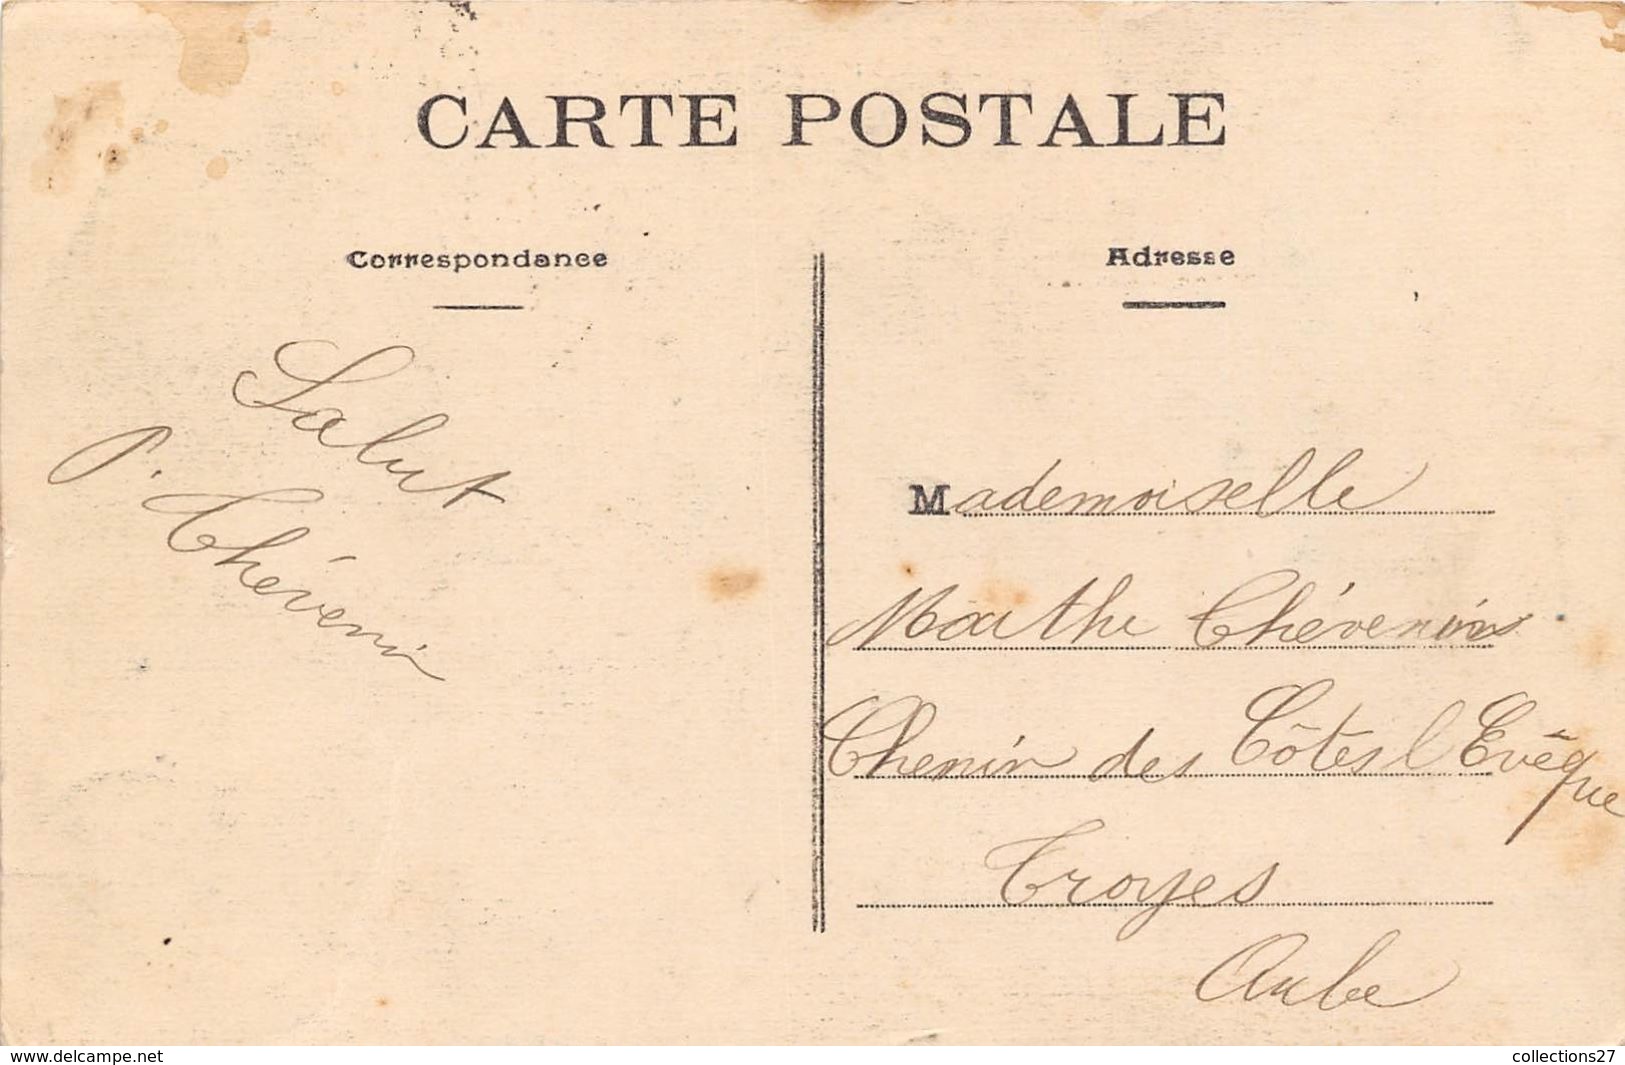 CARTE POSTALE
Correspondance
Adresse
Salut
P. Thévenin
Mademoiselle
Marthe Thévenin
Chemin des Côtes l'Evêque
Troyes
Aube
www.delcampe.net
collections27